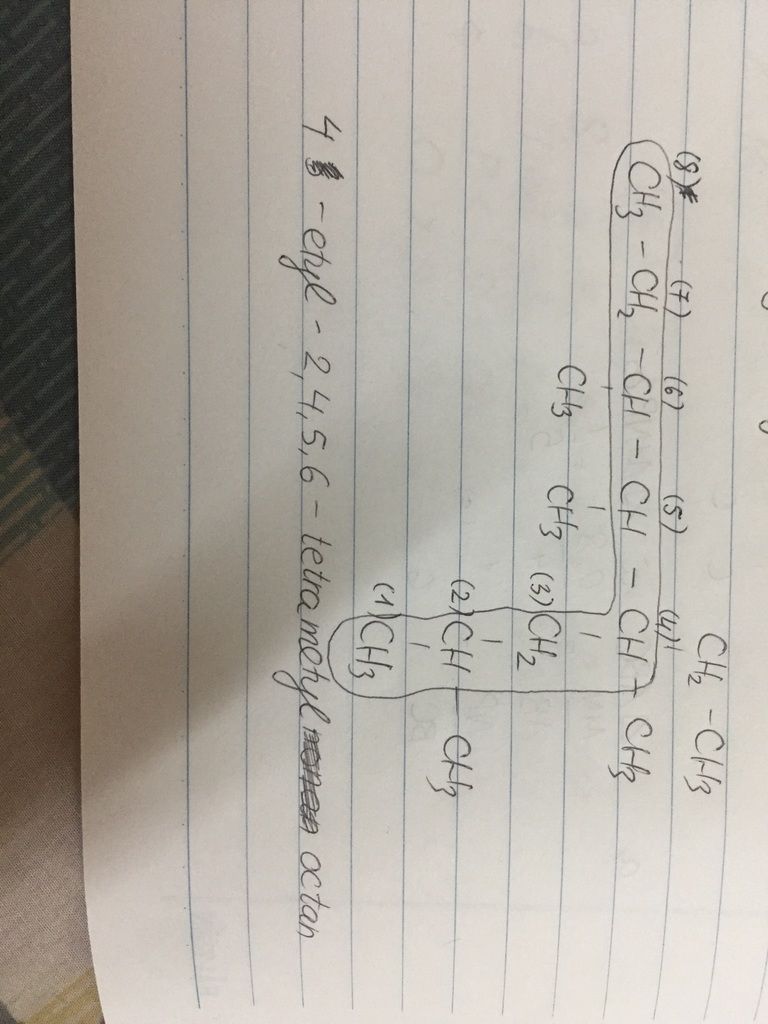 CH2 - CH3
(8) (7) (6) (5) (4)
CH3 - CH2 - CH - CH - CH - CH3
CH3 CH3 (3) CH2
(2) CH - CH3
(1) CH3
4 - etyl - 2,4,5,6 - tetrametyl octan